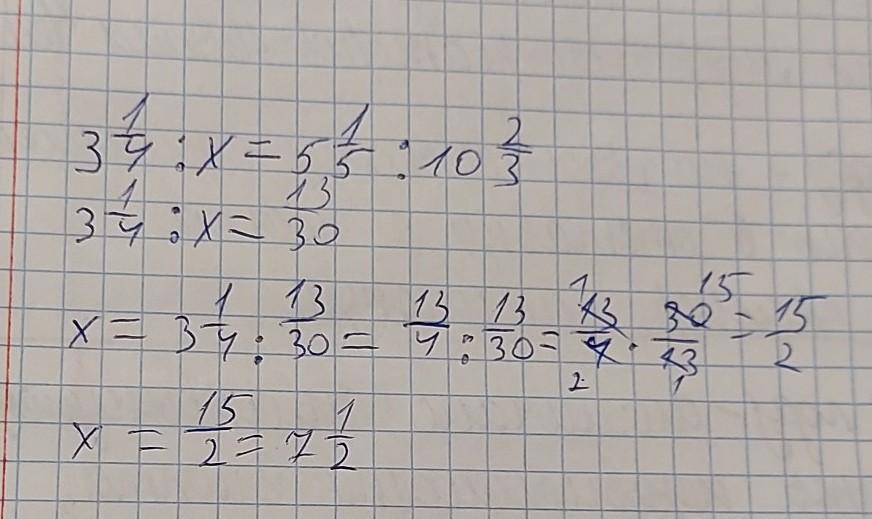 3 1/4 : x = 5 1/5 : 10 2/3
3 1/4 : x = 13/30
x = 3 1/4 : 13/30 = 13/4 : 13/30 = 13/4 · 30/13 = 15/2
x = 15/2 = 7 1/2